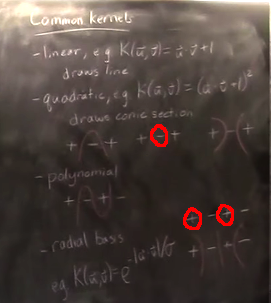 Common kernel
- linear, e.g K(u,v)=u·v+1
draws line
- quadratic, e.g K(u,v)=(u·v+1)²
draws conic section
+ - + + - + +)-(+
- polynomial
+ - + -
+ - + -
- radial basis +)-(+(-
eg K(u,v)=e^-|u-v|/σ